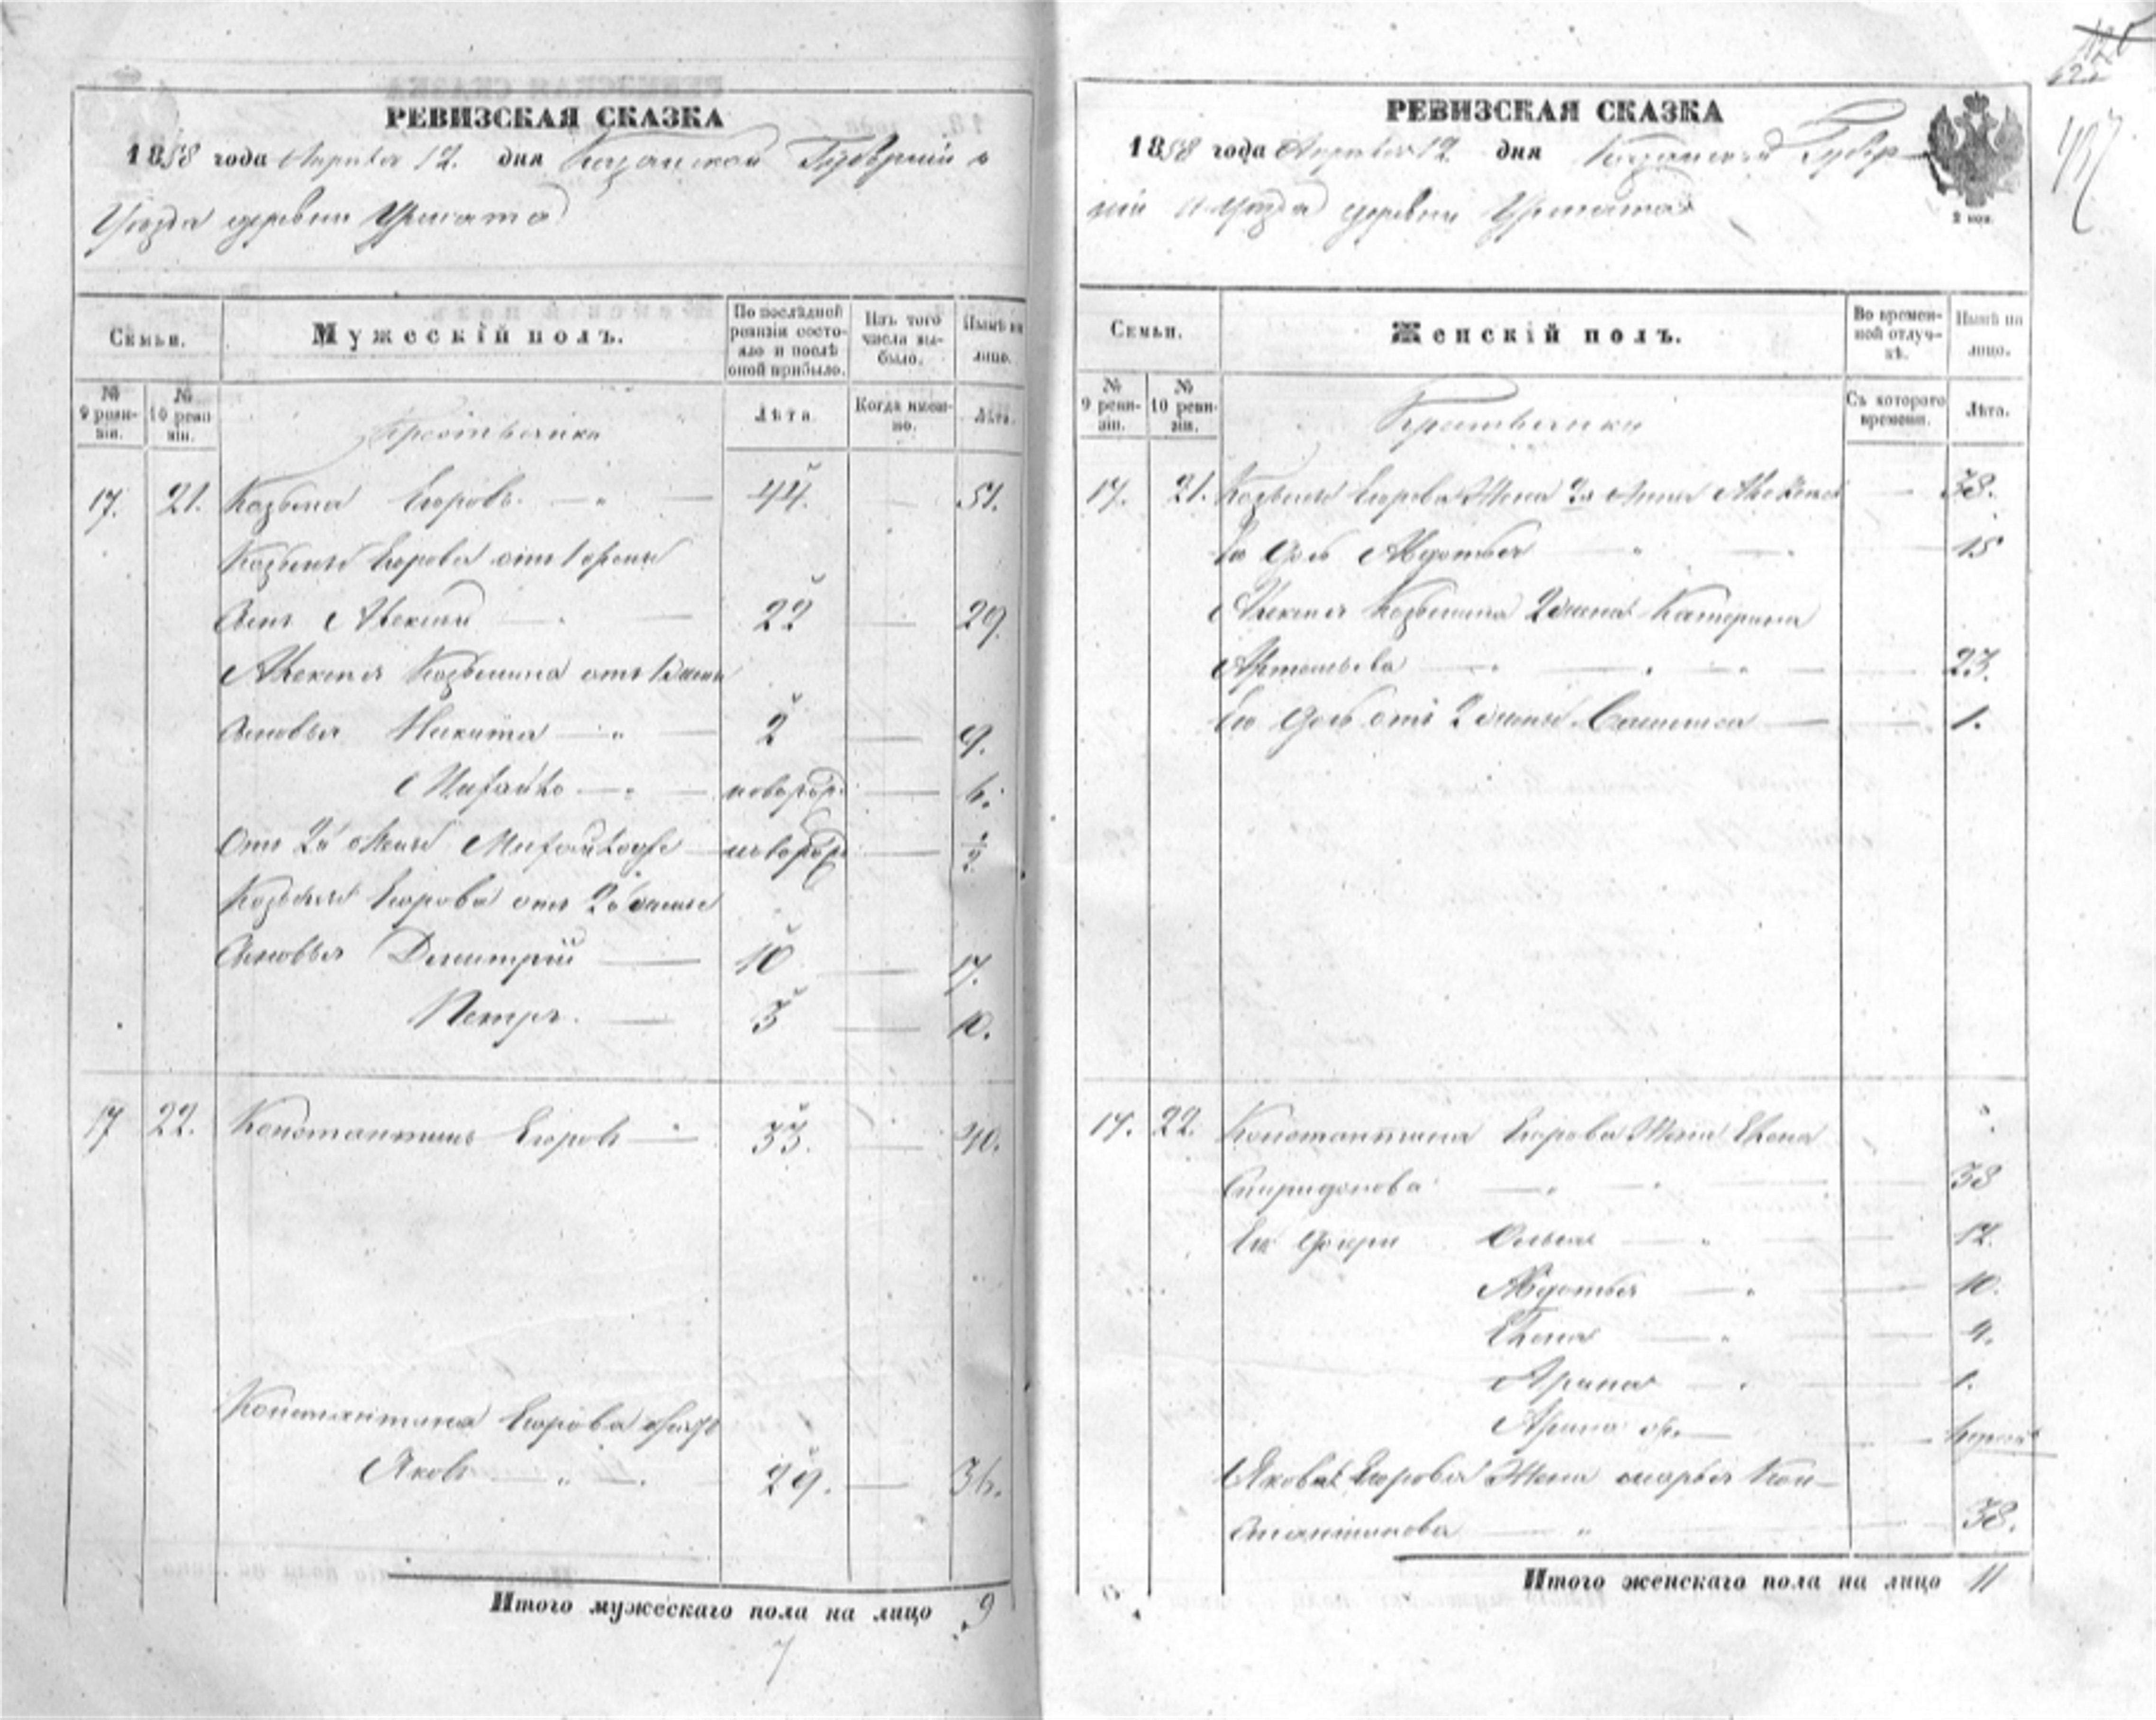 РЕВИЗСКАЯ СКАЗКА
1858 года Апреля 12. дня Казанской Губерніи и
Уезда деревни Урмата
Семьи.
Мужескій полъ.
По послѣдней ревизіи состояло и послѣ оной прибыло.
Изъ того числа выбыло.
Нынѣ на лицо.
№ 9 ревизіи.
№ 10 ревизіи.
Крестьянинъ
Лѣта.
Когда именно.
Лѣта.
17. 21. Козьма Егоровъ 44. 51.
Козьмы Егорова отъ 1 жены
Сынъ Алексей 22 29.
Алексея Козьмина отъ 1 жены
Сыновья Никита 2 9.
Михайло новорож. 6.
Отъ 2й жены Михайло же новорож 1/2
Козьмы Егорова отъ 2й жены
Сыновья Дмитрій 10 17.
Петръ 3 10.
17 22. Константинъ Егоровъ 33. 40.
Константина Егорова братъ
Яковъ 29. 36.
Итого мужескаго пола на лицо 9
7
РЕВИЗСКАЯ СКАЗКА
1858 года Апреля 12 дня Казанской Губер
ніи и Уезда деревни Урмата
2 коп.
137
Семьи.
Женскій полъ.
Во временной отлучкѣ.
Нынѣ на лицо.
№ 9 ревизіи.
№ 10 ревизіи.
Крестьянки
Съ котораго времени.
Лѣта.
17. 21. Козьмы Егорова Жена 2я Анна Алексеева 38.
Ея дочь Авдотья 15
Алексея Козьмина 2 жена Катерина
Артемьева 23.
Ея дочь отъ 2 жены 1.
17. 22. Константина Егорова Жена Елена
Спиридонова 38
Ея дочери 12.
Авдотья 10.
Елена 4.
Арина 1.
Арина
Якова Егорова Жена Марья Кон-
стантинова 38.
Итого женскаго пола на лицо 11